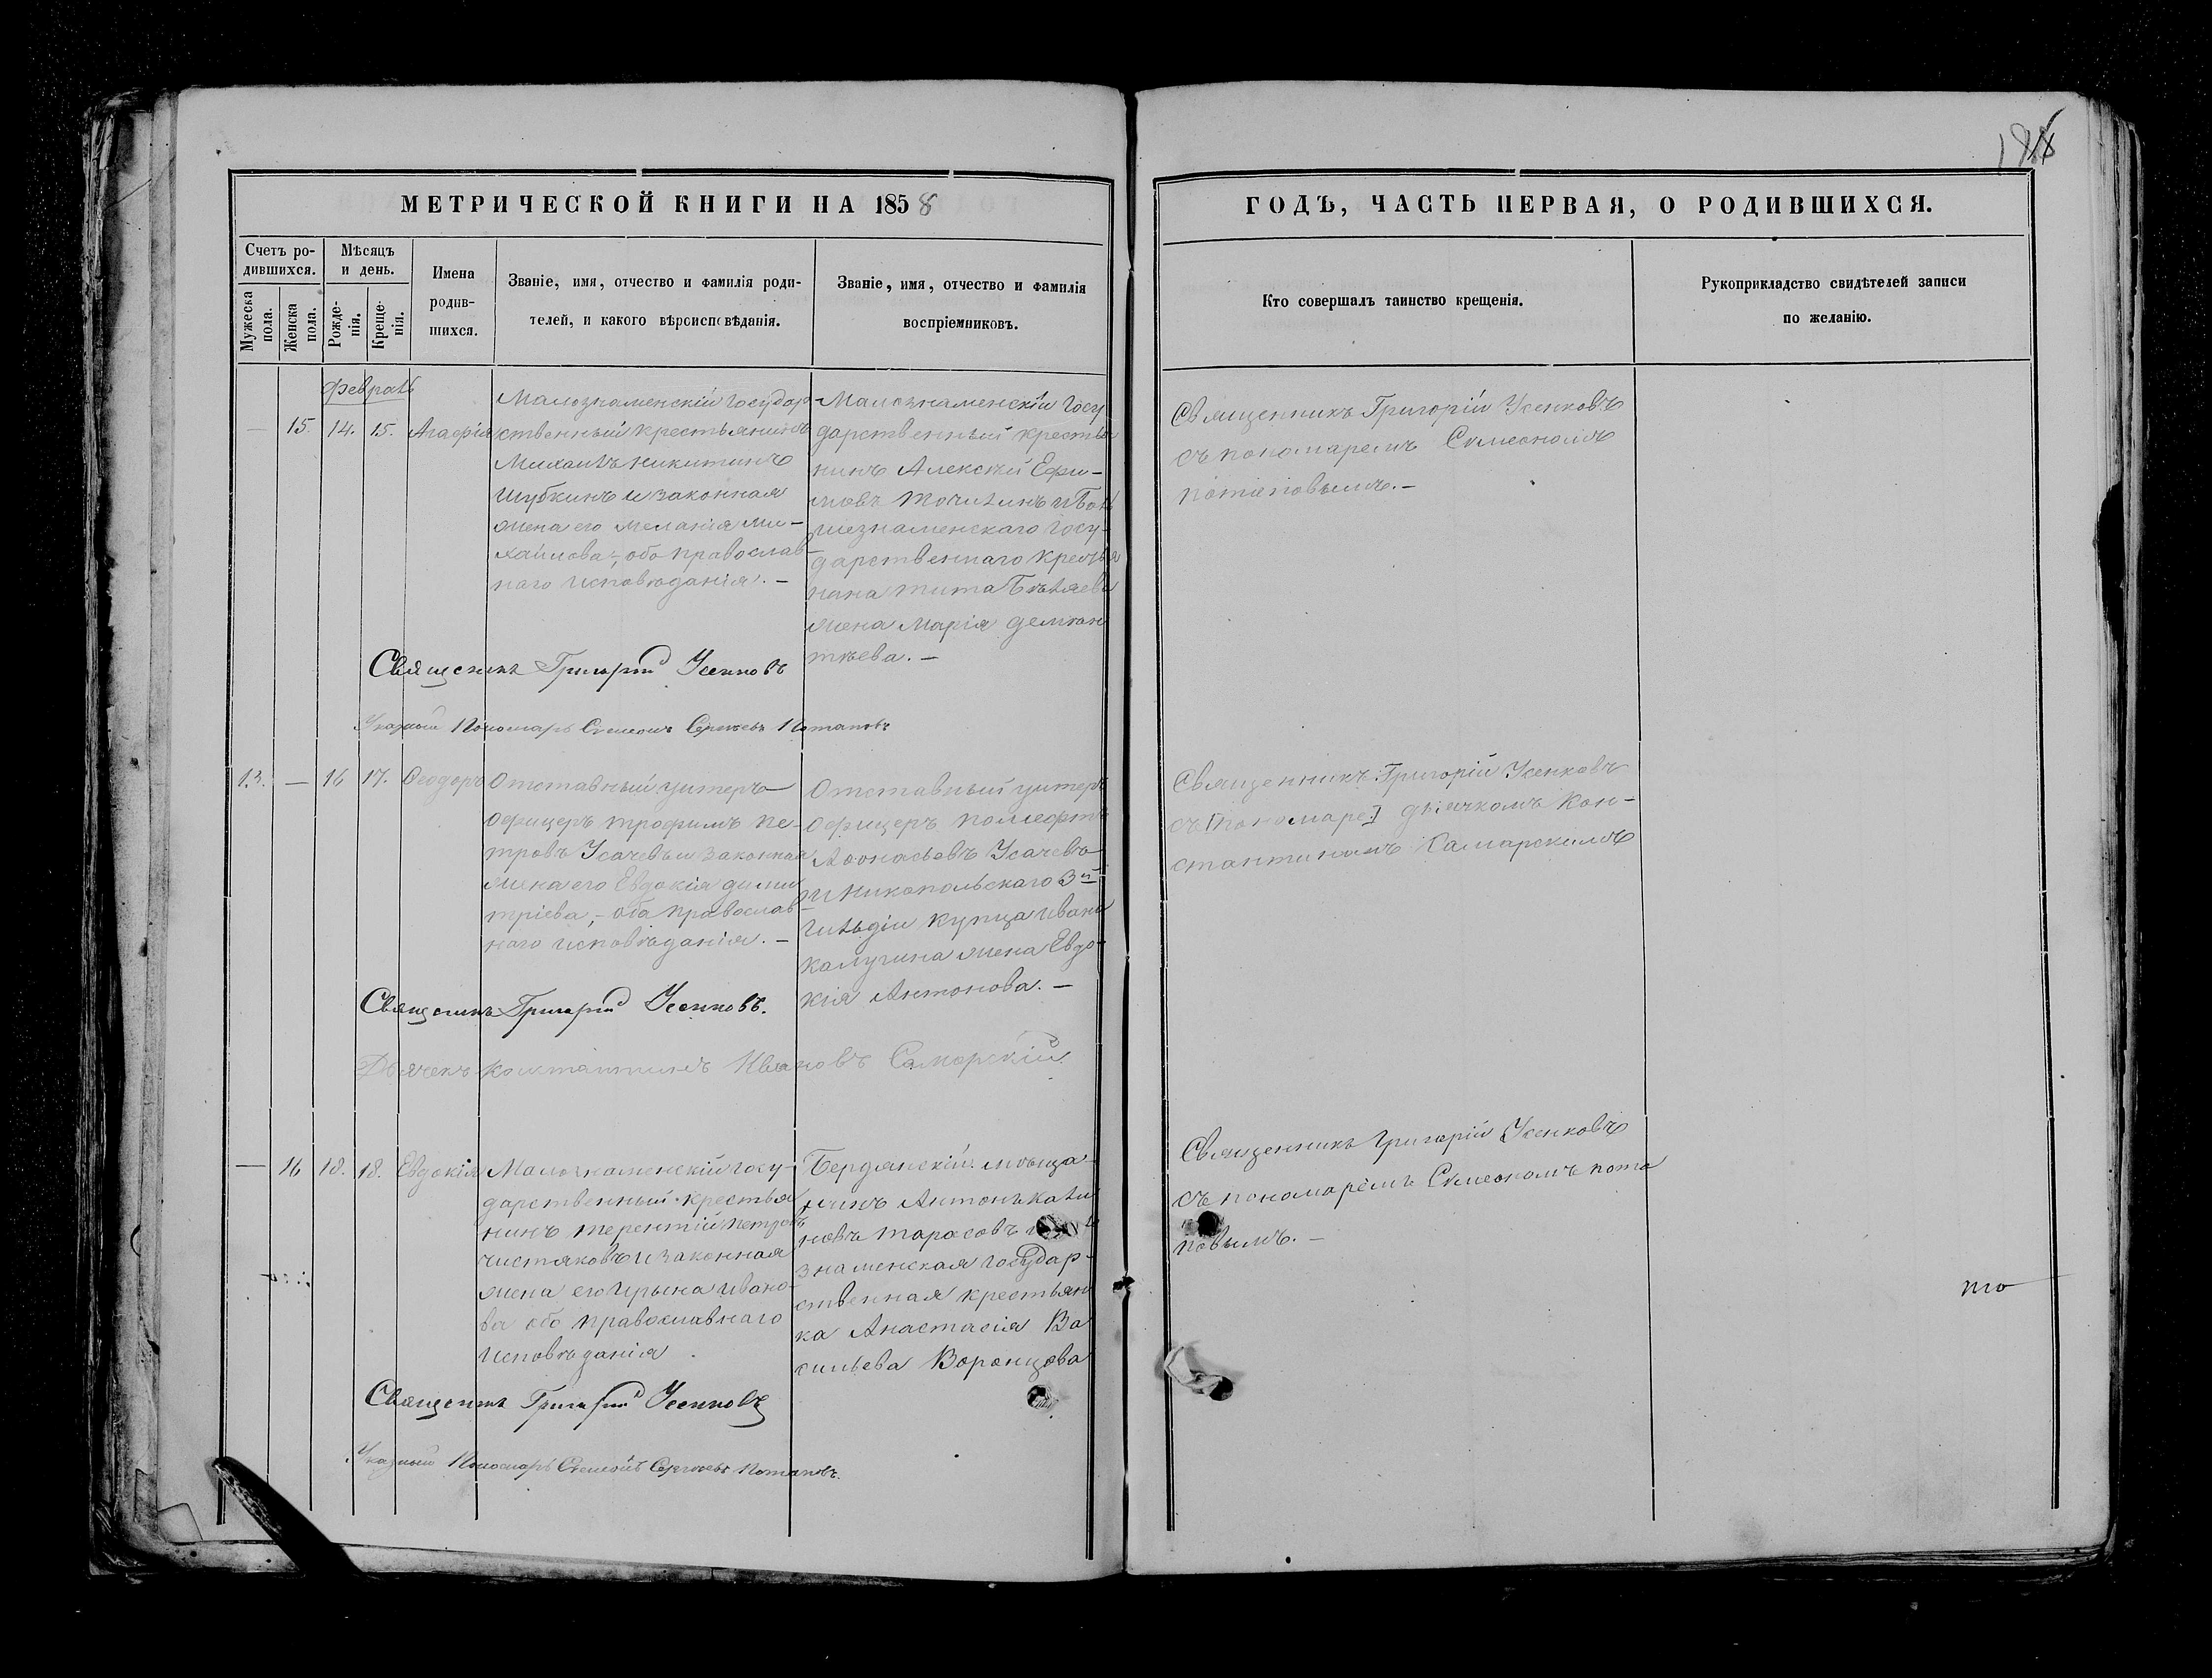 188
МЕТРИЧЕСКОЙ КНИГИ НА 1858
ГОДЪ, ЧАСТЬ ПЕРВАЯ, О РОДИВШИХСЯ.
Счетъ ро-
дившихся.
Мужеска
пола.
Женска
пола.
Мѣсяцъ
и день.
Рожде-
нія.
Креще-
нія.
Имена
родив-
шихся.
Званіе, имя, отчество и фамилія роди-
телей, и какого вѣроисповѣданія.
Званіе, имя, отчество и фамилія
воспріемниковъ.
Кто совершалъ таинство крещенія.
Рукоприкладство свидѣтелей записи
по желанію.
Февраль
— 15. 14. 15. Агафія
Малознаменскій государ
ственный крестьянинъ
Михаилъ Никитинъ
Шубкинъ и законная
жена его Меланія Ми-
хайлова, обо православ-
наго исповѣданія. —
Малознаменскій госу
дарственный крестья
нинъ Алексѣй Ефи-
мовъ Точилинъ и Боль
шезнаменскаго госу-
дарственнаго крестья
нина Тита Бѣляева
жена Марія Демен
тѣева. —
Священникъ Григорій Усенковъ
съ пономаремъ Сѵмеономъ
Потаповымъ. —
Священникъ Григорій Усенковъ
Указный Пономарь Сѵмеонъ Сергѣевъ Потаповъ
13. — 16 17. Ѳеодоръ
Отставный унтеръ
офицеръ Трофимъ Пе-
тровъ Усачевъ и законная
жена его Евдокія Дими
тріева, — оба православ-
наго исповѣданія. —
Отставный унтеръ
офицеръ
Аѳонасьевъ Усачевъ
и Никопольскаго 3й
гильдіи купца Ивана
Калугина жена Евдо-
кія Антонова. —
Священникъ Григорій Усенковъ
съ [пономаре] дьячкомъ Кон-
стантиномъ Самарскимъ
Священникъ Григорій Усенковъ.
Дьячекъ Константинъ Ивановъ Самарскій
— 16 18. 18. Евдокія
Малознаменскій госу-
дарственный крестья
нинъ Терентій Петровъ
Чистяковъ и законная
жена его Ирина Ивано-
ва обо православнаго
исповѣданія.
Бердянскій мѣща-
нинъ Антонъ Кали
новъ Тарасовъ
знаменская государ-
ственная крестьян
ка Анастасія Ва
сильева Воронцова
Священникъ Григорій Усенковъ
съ пономаремъ Сѵмеономъ Пота
повымъ. —
то
Священникъ Григорій Усенковъ
Указный Пономарь Сѵмеонъ Сергѣевъ Потаповъ.